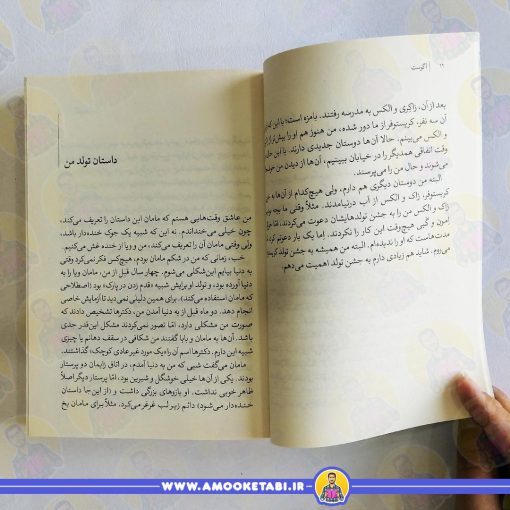 ۱۶ | آگوست
بعد از آن، زاکری و الکس به مدرسه رفتند. بامزه است؛ با این که
آن سه نفر، کریستوفر از ما دور شده، من هنوز هم او را بیش‌تر از
و الکس می‌بینم. حالا آن‌ها دوستان جدیدی دارند. با این حال
وقت اتفاقی همدیگر را در خیابان ببینیم، آن‌ها از دیدن من
می‌شوند و حال من را می‌پرسند.
البته من دوستان دیگری هم دارم، ولی هیچ‌کدام از آن‌ها به
کریستوفر، زاک و الکس از آب درنیامدند. مثلاً وقتی ما بچه بودیم
زاک و الکس من را به جشن تولدهایشان دعوت می‌کردند، امّا
امرن و گبی هیچ‌وقت این کار را نکردند. اما یک بار دعوتم کرد
مدت‌هاست که او را ندیده‌ام. البته من همیشه به جشن تولد
می‌روم. شاید هم زیادی دارم به جشن تولد اهمیت می‌دهم.
داستان تولد من
من عاشق وقت‌هایی هستم که مامان این داستان را تعریف می‌کند،
چون خیلی می‌خنداندم. نه این که شبیه یک جوک خنده‌دار باشد،
ولی وقتی مامان آن را تعریف می‌کند، من و ویا از خنده غش می‌کنیم.
خب، زمانی که من در شکم مامان بودم، هیچ‌کس فکر نمی‌کرد وقتی
به دنیا بیایم این‌شکلی می‌شوم. چهار سال قبل از من، مامان ویا را به
دنیا آورده بود، و تولد او برایش شبیه «قدم زدن در پارک» بود (اصطلاحی
که مامان استفاده می‌کند). برای همین دلیلی نمی‌دید تا آزمایش خاصی
انجام دهد. دو ماه قبل از به دنیا آمدن من، دکترها تشخیص دادند که
صورت من مشکلی دارد، امّا تصور نمی‌کردند مشکل این‌قدر جدی
باشد. آن‌ها به مامان و بابا گفتند من شکافی در سقف دهانم یا چیزی
شبیه این دارم. دکترها اسم آن را «یک مورد غیرعادی کوچک» گذاشتند.
مامان می‌گفت شبی که من به دنیا آمدم، در اتاق زایمان دو پرستار
بودند. یکی از آن‌ها خیلی خوشگل و شیرین بود، امّا پرستار دیگر اصلاً
ظاهر خوبی نداشت. او بازوهای بزرگی داشت و (از این‌جا داستان
خنده‌دار می‌شود) دائم زیر لب غرغر می‌کرد. مثلاً برای مامان یخ
WWW.AMOOKETABI.IR